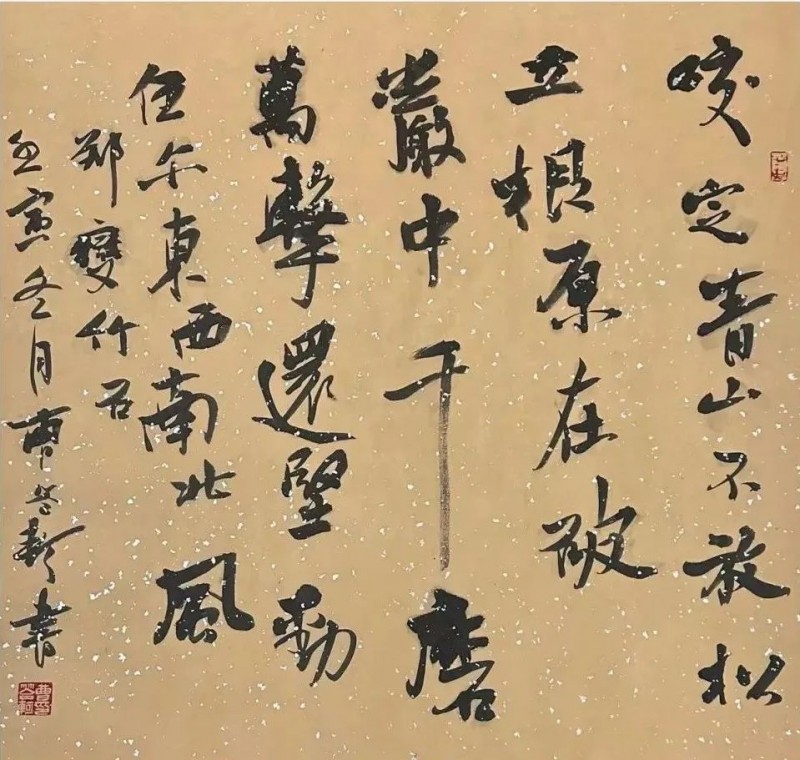 咬定青山不放松
立根原在破
巖中千磨
萬擊還堅勁
任尔東西南北風
郑燮竹石
壬寅冬月曹書